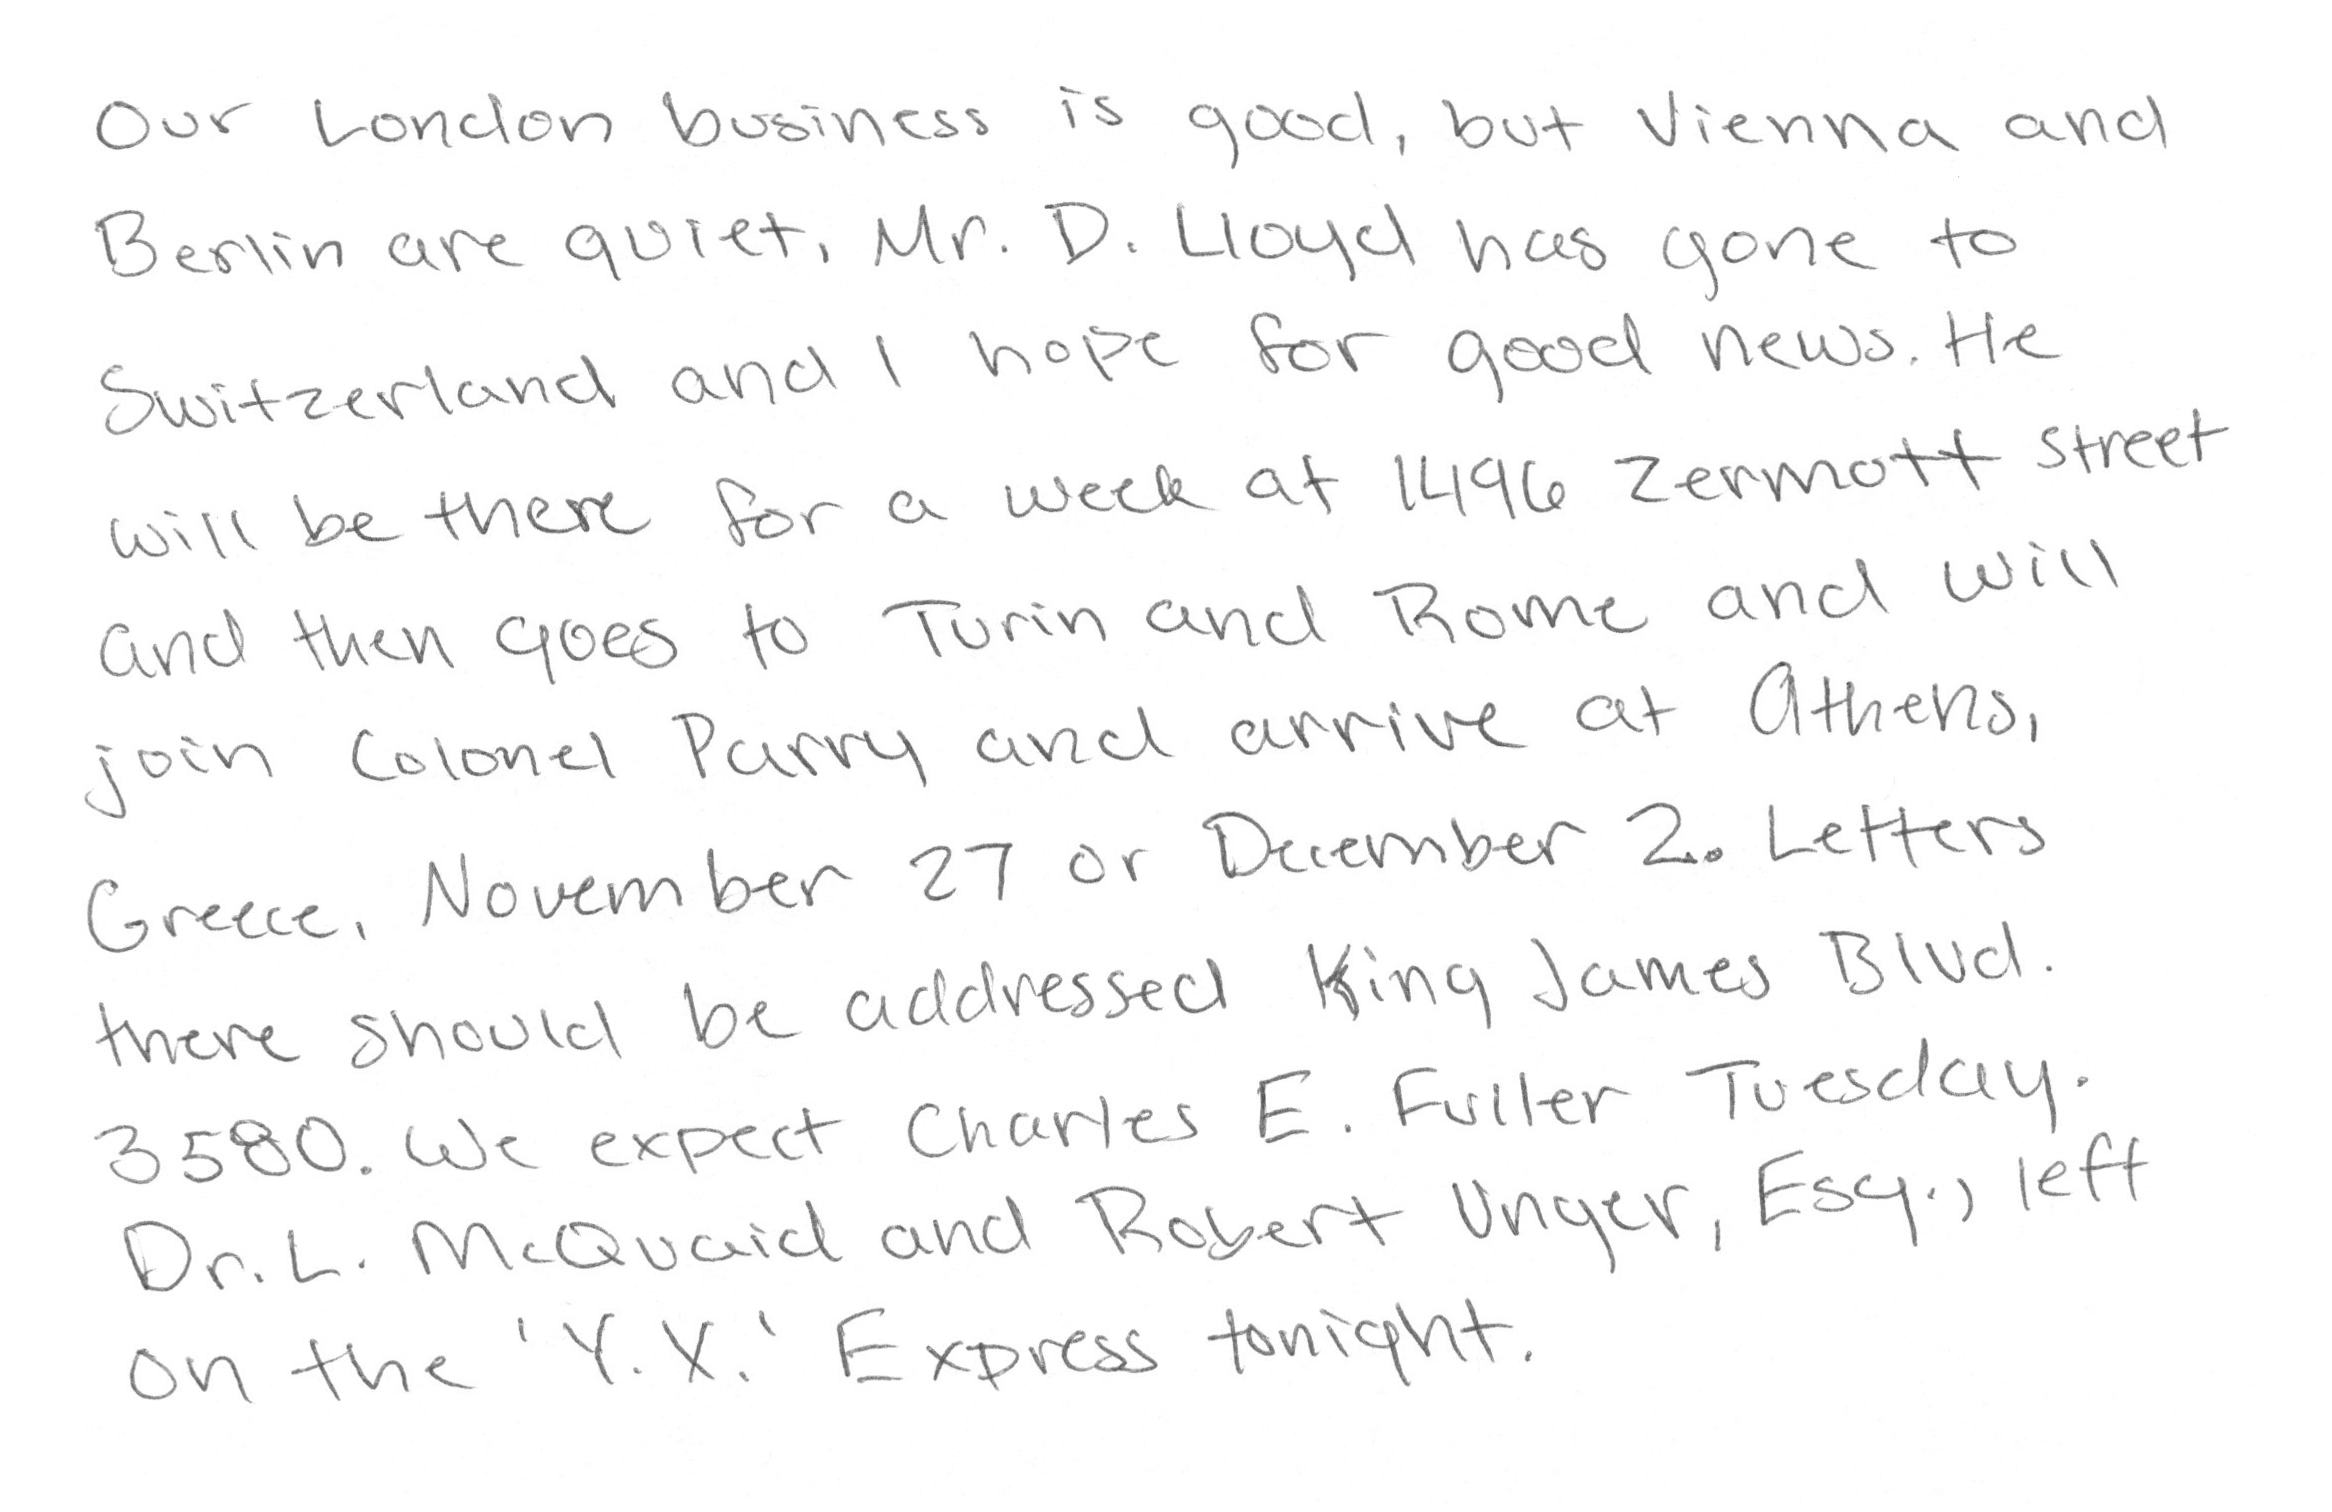 Our London business is good, but Vienna and
Berlin are quiet, Mr. D. Lloyd has gone to
Switzerland and I hope for good news. He
will be there for a week at 1496 Zermott Street
and then goes to Turin and Rome and will
join Colonel Parry and arrive at Athens,
Greece, November 27 or December 2. Letters
there should be addressed King James Blvd.
3580. We expect Charles E. Fuller Tuesday.
Dr. L. McQuaid and Robert Unger, Esq., left
on the 'Y.X.' Express tonight.